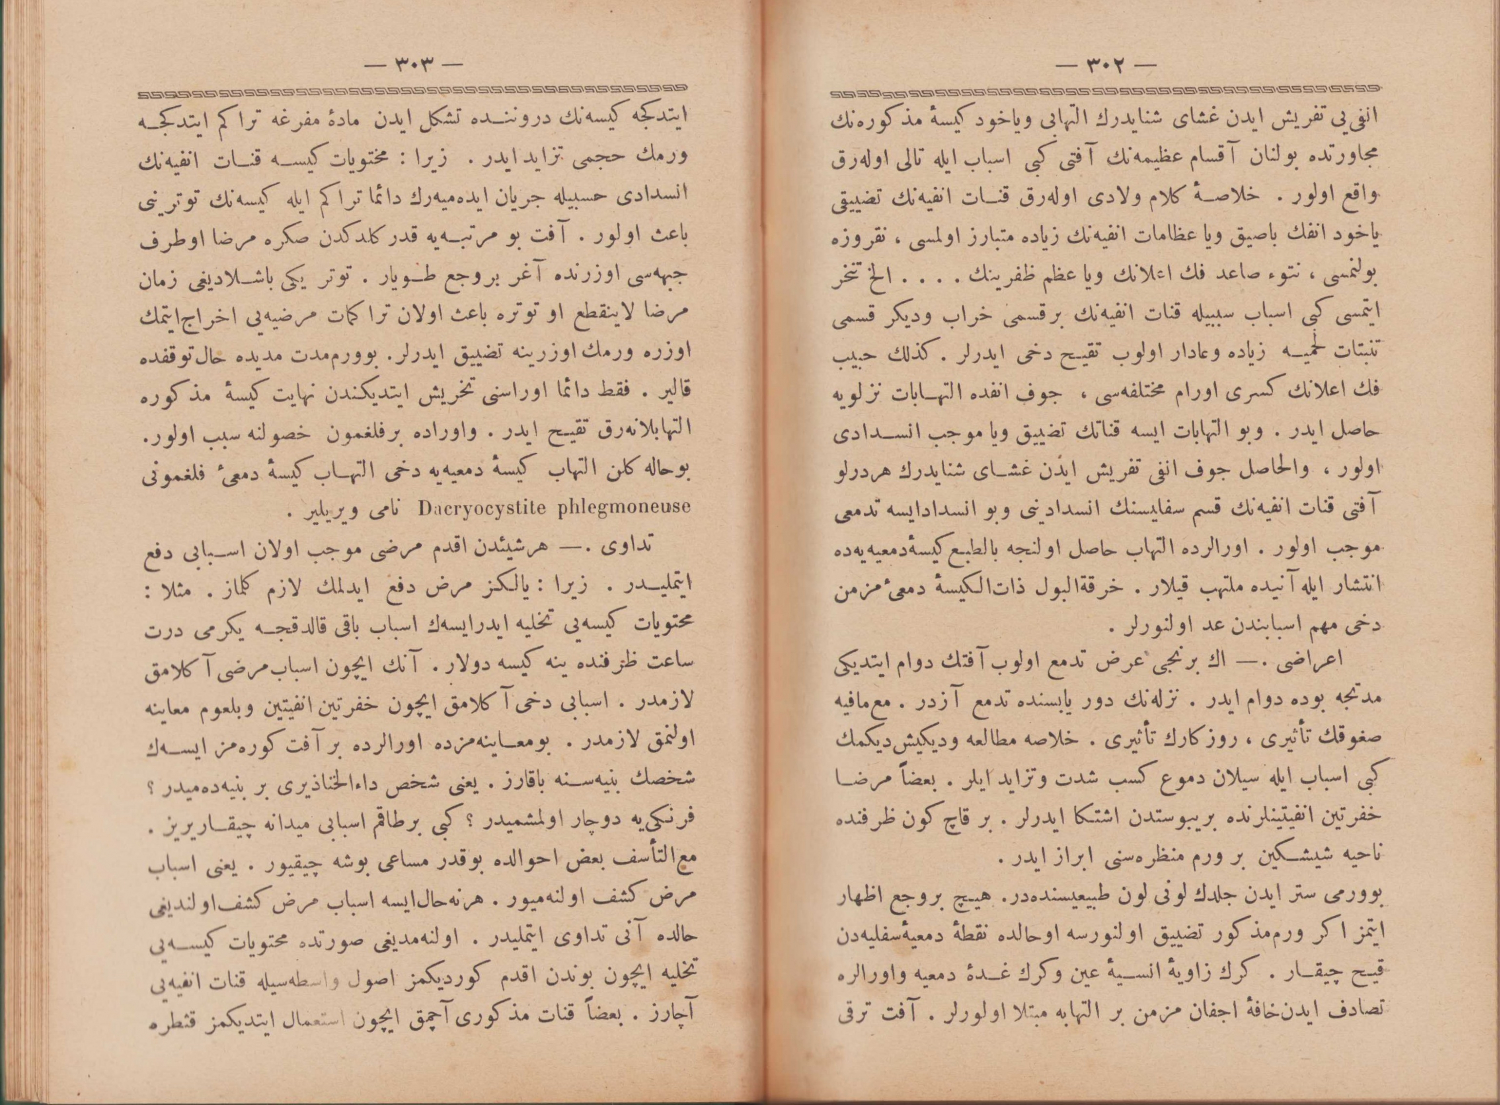 — ٣٠٢ —
انفی‌یی تفریش ایدن غشای شنایدرك التهابی ویاخود كیسهٔ مذكوره‌نك
مجاورتده بولنان آقسام عظیمه‌نك آفتی كبی اسباب ایله تالی اوله‌رق
واقع اولور . خلاصهٔ كلام ولادی اوله‌رق قنات انفیه‌نك تضییقی
یاخود انفك باصیق ویا عظامات انفیه‌نك زیاده متبارز اولمسی ، نقروزه
بولنمسی ، نتوء صاعد فك اعلانك ویا عظم ظفرینك . . . . الخ تنخر
ایتمسی كبی اسباب سببیله قنات انفیه‌نك برقسمی خراب ودیكر قسمی
تنبتات لحمیه زیاده وعادار اولوب تقیح دخی ایدرلر . كذلك جیب
فك اعلانك كسری اورام مختلفه‌سی ، جوف انفده التهابات نزلویه
حاصل ایدر . وبو التهابات ایسه قناتك تضییق ویا موجب انسدادی
اولور ، والحاصل جوف انفی تفریش ایدن غشای شنایدرك هردرلو
آفتی قنات انفیه‌نك قسم سفلیسنك انسدادینی وبو انسدادایسه تدمعی
موجب اولور . اورالرده التهاب حاصل اولنجه بالطبع كیسهٔ‌دمعیه‌یه‌ده
انتشار ایله آنیده ملتهب قیلار . خرقةالبول ذات‌الكیسهٔ دمعیٔ مزمن
دخی مهم اسبابندن عد اولنورلر .
اعراضی .— اك برنجی عرض تدمع اولوب آفتك دوام ایتدیكی
مدتجه بوده دوام ایدر . نزله‌نك دور یابسنده تدمع آزدر . مع‌مافیه
صغوقك تأثیری ، روزكارك تأثیری . خلاصه مطالعه ودیكیش دیكمك
كبی اسباب ایله سیلان دموع كسب شدت وتزاید ایلر . بعضاً مرضا
خفرتین انفیتینلرنده بریبوستدن اشتكا ایدرلر . بر قاچ كون ظرفنده
ناحیه شیشكین بر ورم منظره‌سنی ابراز ایدر .
بوورمی ستر ایدن جلدك لونی لون طبیعیسنده‌در. هیچ بروجع اظهار
ایتمز اكر ورم‌مذكور تضییق اولنورسه اوحالده نقطهٔ دمعیهٔ‌سفلیه‌دن
قیح چیقار . كرك زاویهٔ انسیهٔ عین وكرك غدهٔ دمعیه واورالره
تصادف ایدن‌حافهٔ اجفان مزمن بر التهابه مبتلا اولورلر . آفت ترقی
— ٣٠٣ —
ایتدكجه كیسه‌نك دروننده تشكل ایدن مادهٔ مفرغه تراكم ایتدكجه
ورمك حجمی تزاید ایدر . زیرا : محتویات كیسه قنات انفیه‌نك
انسدادی حسبیله جریان ایده‌میه‌رك دائما تراكم ایله كیسه‌نك توترینی
باعث اولور . آفت بو مرتبه‌یه قدر كلدكدن صكره مرضا اوطرف
جبهه‌سی اوزرنده آغر بروجع طویار . توتر یكی باشلادیغی زمان
مرضا لاینقطع او توتره باعث اولان تراكمات مرضیه‌یی اخراج‌ایتمك
اوزره ورمك اوزرینه تضییق ایدرلر. بوورم‌مدت مدیده حال‌توقفده
قالیر . فقط دائما اوراسنی تخریش ایتدیكندن نهایت كیسهٔ مذكوره
التهابلانه‌رق تقیح ایدر . واوراده برفلغمون حصولنه سبب اولور.
بوحاله كلن التهاب كیسهٔ دمعیه‌یه دخی التهاب كیسهٔ دمعیٔ فلغمونی
Dacryocystite phlegmoneuse نامی ویریلیر .
تداوی .— هرشیئدن اقدم مرضی موجب اولان اسبابی دفع
ایتملیدر . زیرا : یالكز مرض دفع ایدلمك لازم كلماز . مثلا :
محتویات كیسه‌یی تخلیه ایدرایسه‌ك اسباب باقی قالدقجه یكرمی درت
ساعت ظرفنده ینه كیسه دولار . آنك ایچون اسباب‌مرضی آكلامق
لازمدر . اسبابی دخی آكلامق ایچون خفرتین انفیتین وبلعوم معاینه
اولنمق لازمدر . بومعاینه‌مزده اورالرده بر آفت كوره‌مز ایسه‌ك
شخصك بنیه‌سنه باقارز . یعنی شخص داءالخنازیری بر بنیه‌ده‌میدر ؟
فرنكی‌یه دوچار اولمشمیدر ؟ كبی برطاقم اسبابی میدانه چیقاریریز .
مع‌التأسف بعض احوالده بوقدر مساعی بوشه چیقیور . یعنی اسباب
مرض كشف اولنه‌میور . هرنه‌حال‌ایسه اسباب مرض كشف‌اولندیغی
حالده آنی تداوی ایتملیدر . اولنه‌مدیغی صورتده محتویات كیسه‌یی
تخلیه ایچون بوندن اقدم كوردیكمز اصول واسطه‌سیله قنات انفیه‌یی
آچارز . بعضاً قنات مذكوری آچمق ایچون استعمال ایتدیكمز قنطره